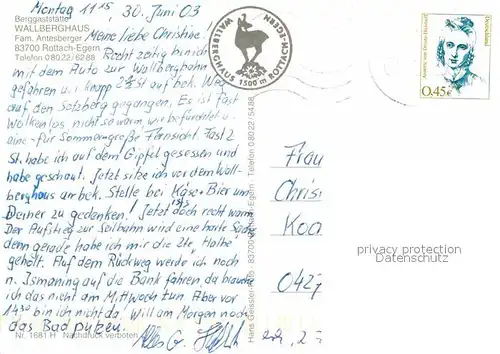 Montag 11¹⁵, 30. Juni 03
Berggaststätte
WALLBERGHAUS
Fam. Antesberger
83700 Rottach-Egern
Telefon 0 80 22 / 62 88
Meine liebe Christine!
Recht zeitig bin ich
mit dem Auto zur Wallbergbahn
gefahren u. knapp 2 St auf bek. Weg
auf den Setzberg gegangen. Es ist fast
Wolkenlos, nicht so warm, wie befürchtet u.
eine - für Sommer - große Fernsicht. Fast 2
St. habe ich auf dem Gipfel gesessen und
habe geschaut. Jetzt sitze ich vor dem Wall-
berghaus am bek. Stelle bei Käse + Bier um
Deiner zu gedenken! Jetzt ist's doch recht warm.
Der Aufstieg zur Seilbahn wird eine harte Sache
denn gerade habe ich mir die 2te "Halbe"
geholt. Auf dem Rückweg werde ich noch
n. Ismaning auf die Bank fahren, da brauche
ich das nicht am Mittwoch tun. Aber vor
14³⁰ bin ich nicht da. Will am Morgen noch
das Bad putzen.
Alles G.
Nr. 1681 H Nachdruck verboten
WALLBERGHAUS 1500 m ROTTACH-EGERN
83700 Rottach-Egern · Telefon 0 80 22 / 54 88
Deutschland
0.45€
Frau
Chris
Koo
042
privacy protection
Datenschutz